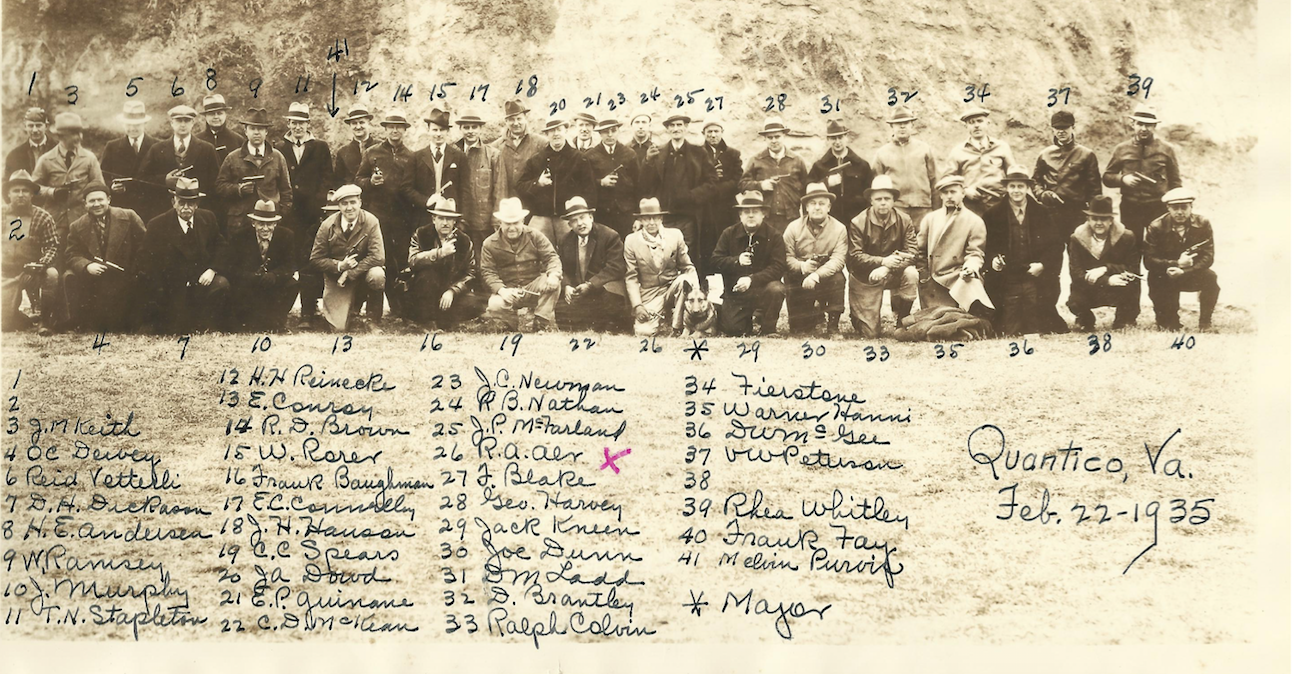 41
1 3 5 6 8 9 11 12 14 15 17 18 20 21 23 24 25 27 28 31 32 34 37 39
2
4 7 10 13 16 19 22 26 * 29 30 33 35 36 38 40
1
2
3 J.M Keith
4 OC Dewey
6 Reid Vetterli
7 D.H. Dickason
8 H.E. Andersen
9 W Ramsey
10 J. Murphy
11 T.N. Stapleton
12 H.H Reinecke
13 E. Conroy
14 R.D. Brown
15 W. Rorer
16 Frank Baughman
17 E.C. Connelly
18 J.H. Hanson
19 C.C Spears
20 Ja Dowd
21 E.P. Guinane
22 C.D. McKean
23 J.C. Newman
24 R B. Nathan
25 J.P. McFarland
26 R.A. Alt X
27 F. Blake
28 Geo. Harvey
29 Jack Kneen
30 Joe Dunn
31 DM Ladd
32 D. Brantley
33 Ralph Colvin
34 Fierstone
35 Warner Hanni
36 DW McGee
37 VW Peterson
38
39 Rhea Whitley
40 Frank Fay
41 Melvin Purvis
* Major
Quantico, Va.
Feb. 22-1935